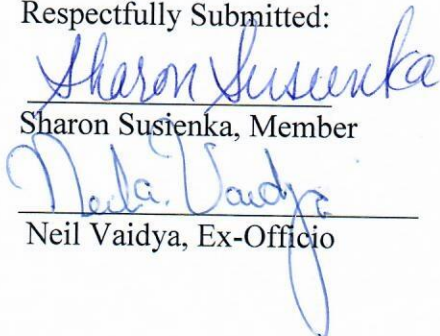 Respectfully Submitted:
Sharon Susienka
Sharon Susienka, Member
Neil a. Vaidya
Neil Vaidya, Ex-Officio